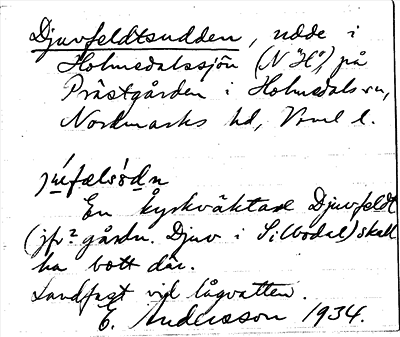 Djuvfeldtsudden, udde i
Holmsdalssjön (N "H"), på
Prästgården i Holmedals sn,
Nordmarks hd, Vrml l.
En kyrkväktare Djuvfeldt
(jfr? gårdn. Djuv i Silbodal) skall
ha bott där.
Landfast vid lågvatten.
E. Andersson 1934.